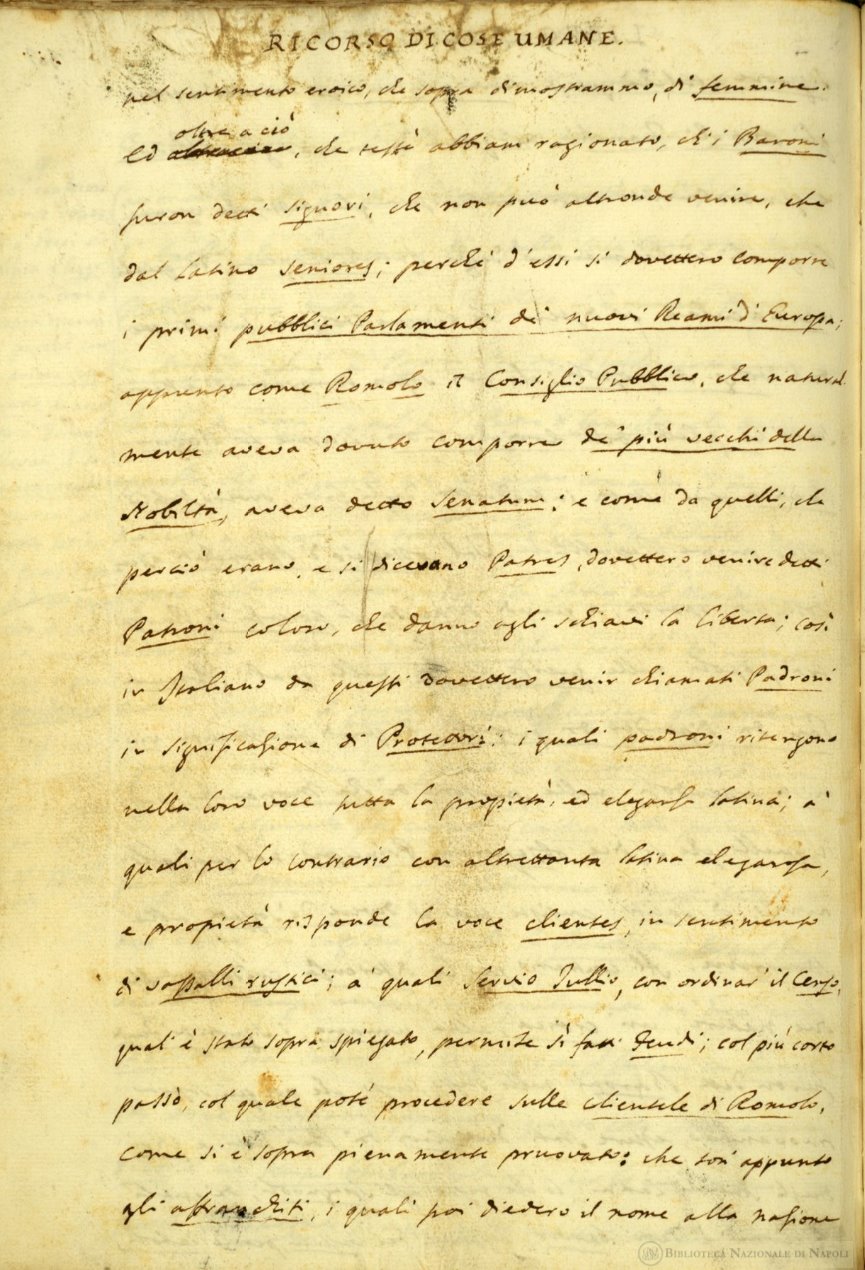 RICORSO DI COSE UMANE.
nel sentimento eroico, che sopra dimostrammo, di femmine.
oltre a ciò
Ed, che testè abbiam ragionato, ch'i Baroni
furon detti signori, che non può altronde venire, che
dal Latino seniores; perchè d'essi si dovettero comporre
i primi pubblici Parlamenti de' nuovi Reami d'Europa;
appunto come Romolo il Consiglio Pubblico, che natural
mente aveva dovuto comporre de' più vecchi della
Nobiltà, aveva detto Senatum: e come da quelli, che
perciò erano, e si dicevano Patres, dovettero venire detti
Patroni coloro, che danno agli schiavi la libertà; così
in Italiano da questi dovettero venir chiamati Padroni
in significazione di Protettori: i quali padroni ritengono
nella loro voce tutta la propietà, ed eleganza latina; a'
quali per lo contrario con altrettanta latina eleganza,
e propietà risponde la voce clientes, in sentimento
di vassalli rustici; a' quali Servio Tullio, con ordinar' il Censo,
qual è stato sopra spiegato, permise sì fatti feudi; col più corto
passo, col quale poté procedere sulle clientele di Romolo,
come si è sopra pienamente pruovato: che son' appunto
gli affranchiti, i quali poi diedero il nome alla nazione
BIBLIOTECA NAZIONALE DI NAPOLI